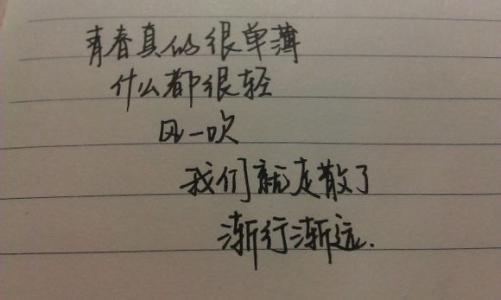 青春真的很单薄
什么都很轻
风一吹
我们就走散了
渐行渐远.